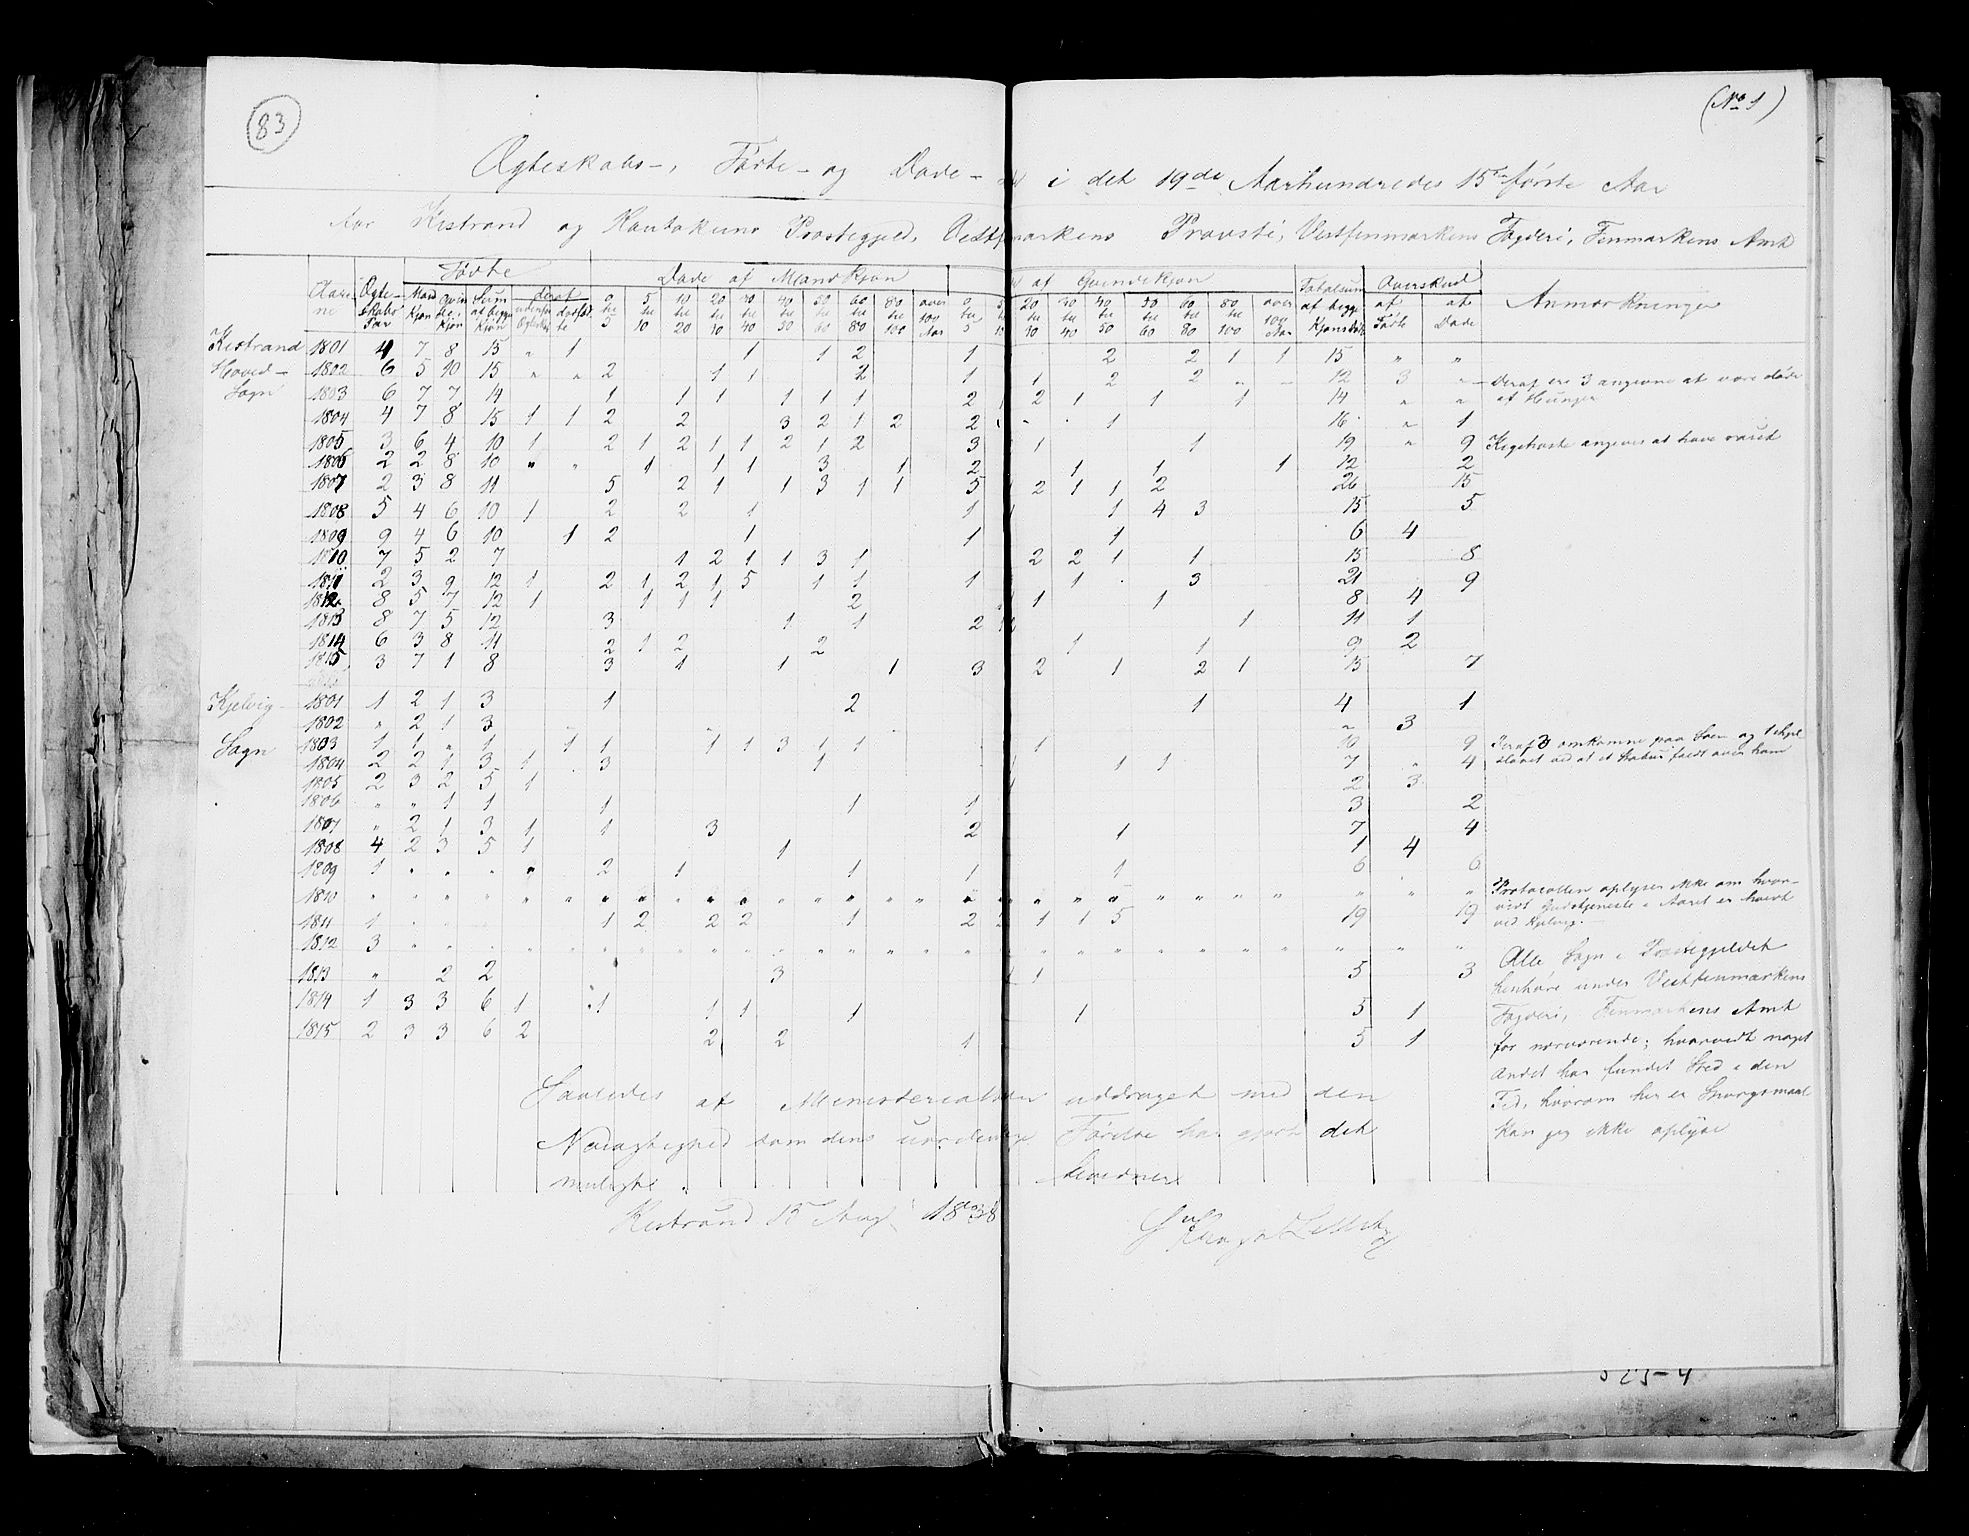 83
(No 1)
Ægteskabs-, Fødte- og Døde- i det 19de Aarhundredes 15 første Aar
for Kistrand og Kautokeino Præstegjeld, Vestfinmarkens Provsti, Vestfinmarkens Fogderi, Finmarkens Amt
Aarene Ægteskabs Par Fødte Døde af Mandkjøn af Qvindekjøn Totalsum af begge Kjøn Overskud Anmærkninger
Mandkjøn Qvindekjøn Sum af begge Kjøn deraf udenfor Ægteskab dødfødte 0 til 5 5 til 10 10 til 20 20 til 30 30 til 40 40 til 50 50 til 60 60 til 80 80 til 100 over 100 Aar 0 til 5 20 til 30 30 til 40 40 til 50 50 til 60 60 til 80 80 til 100 over 100 Aar af Fødte af Døde
Kistrand 1801 4 7 8 15 „ 1 1 1 2 1 2 2 1 1 15 „ „
Hoved- 1802 6 5 10 15 „ „ 2 1 1 2 1 1 2 2 „ „ 12 3 „ Deraf ere 3 angivne at være døde
Sogn 1803 6 7 7 14 1 1 1 1 1 1 2 2 1 1 1 14 „ „ af Hunger
1804 4 7 8 15 1 1 2 2 3 2 1 2 2 1 16 „ 1
1805 3 6 4 10 1 2 1 2 1 1 2 1 2 3 1 1 19 „ 9 Kigehoste angives at have været
1806 2 2 8 10 „ „ 1 1 1 3 1 2 1 1 1 12 2
1807 2 3 8 11 5 2 1 1 3 1 1 5 2 1 1 2 26 15
1808 5 4 6 10 1 2 2 1 1 1 4 3 15 5
1809 9 4 6 10 1 2 1 1 1 6 4
1810 7 5 2 7 1 2 1 1 3 1 2 2 1 1 15 8
1811 2 3 9 12 1 2 1 2 1 5 1 1 1 1 3 21 9
1812 8 5 7 12 1 1 1 1 2 1 1 8 4
1813 8 7 5 12 3 1 1 2 1 11 1
1814 6 3 8 11 2 1 2 2 1 1 9 2
1815 3 7 1 8 3 1 1 1 3 2 1 2 1 15 7
Kjelvig 1801 1 2 1 3 1 2 1 4 1
1802 „ 2 1 3 „ 3
Sogn 1803 1 1 „ 1 1 1 1 1 3 1 1 1 10 9 Deraf 8 omkomne paa Søen og 1 ihjel
1804 2 2 1 3 1 3 1 1 1 7 „ 4 slaaet ved at et faldt over ham
1805 2 3 2 5 1 2 3
1806 „ „ 1 1 1 1 1 3 2
1807 „ 2 1 3 1 1 3 2 1 7 4
1808 4 2 3 5 1 1 1 4
1809 1 „ „ „ „ 2 1 1 1 1 6 6
1810 „ „ „ „ „ „ „ „ „ „ „ „ „ „ „ „ „ „ Protocollen oplyser ikke om hvor-
1811 1 1 2 2 2 1 2 1 1 5 19 19 vidt Gudstjeneste i Aaret er holdt
ved Kjelvig.
1812 3 „ „ „ „ „ „ „ „ „ „ „ „ „ „ „ „ „ Alle Sogn i Præstegjeldet
1813 „ 2 2 3 1 5 3 henhøre under Vestfinmarkens
1814 1 3 3 6 1 1 1 1 1 1 5 1 Fogderi, Finmarkens Amt
1815 2 3 3 6 2 2 2 1 5 1 for nærværende; hvorvidt noget
Andet har fundet Sted i den
Tid, hvorom her er Spørgsmaal
kan jeg ikke oplyse
Saaledes af Ministerialbøgen uddraget med den
Nøiagtighed som dens uordentlige Førelse har gjort det
muligt. bevidner
Kistrand 15 Aug 1838
525-4